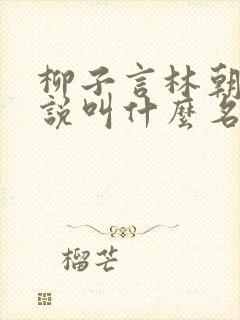 柳子言林朝
說叫什麼名
榴芒